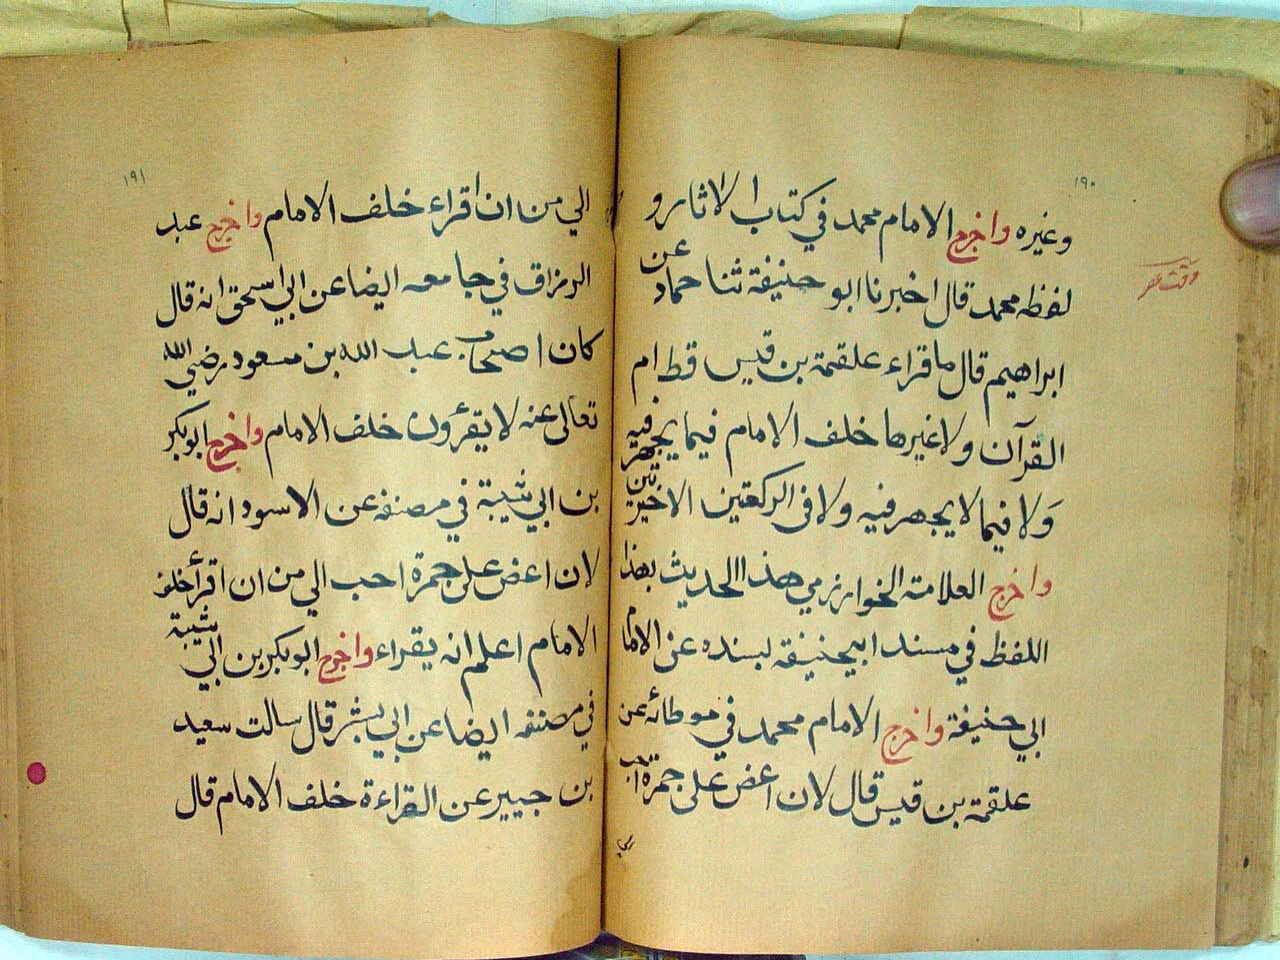 ١٩٠
وغيره واخرج الامام محمد في كتاب الاثار و
لفظه محمد قال اخبرنا ابو حنيفة ثنا حماد عن
ابراهيم قال ما قراء علقمة بن قيس قط ام
القرآن ولا غيرها خلف الامام فيما يجهر فيه
ولا فيما لا يجهر فيه ولا فى الركعتين الاخيرتين
واخرج العلامة الخوارزمي هذا الحديث بهذا
اللفظ في مسند ابيحنيفة بسنده عن الاما
ابي حنيفة واخرج الامام محمد في موطائه عن
علقمة بن قيس قال لان اعض على جمرة احب
١٩١
الي من ان اقراء خلف الامام واخرج عبد
الرزاق في جامعه ايضا عن ابي اسحق انه قال
كان اصحاب عبد الله بن مسعود رضي الله
تعالى عنه لا يقرؤن خلف الامام واخرج ابو بكر
بن ابي شيبة في مصنفه عن الاسود انه قال
لان اعض على جمرة احب الي من ان اقرأ خلف
الامام اعلم انه يقراء واخرج ابو بكر بن ابي شيبة
في مصنفه ايضا عن ابي بشر قال سالت سعيد
بن جبير عن القراءة خلف الامام قال